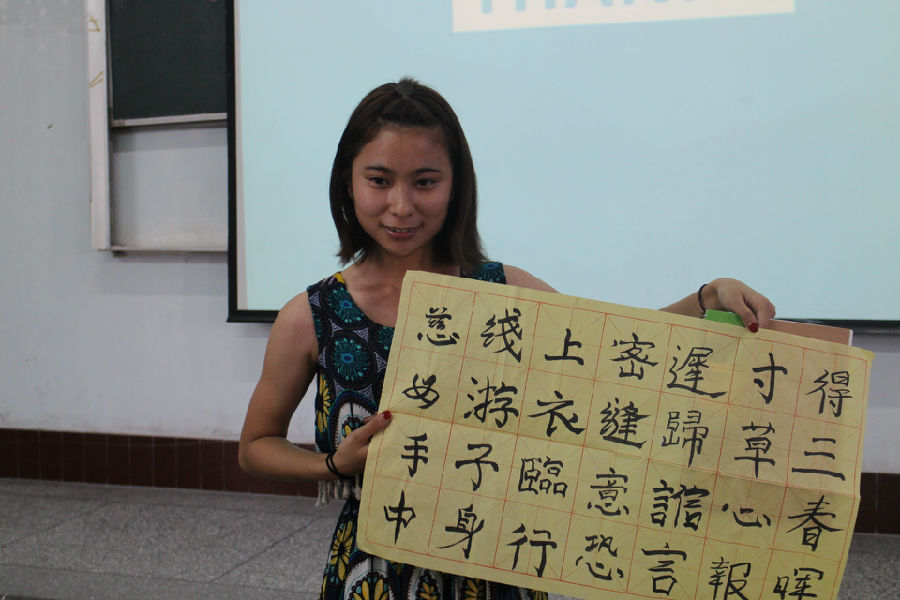 慈母手中
线游子身
上衣臨行
密縫意恐
遲歸誰言
寸草心報
得三春暉